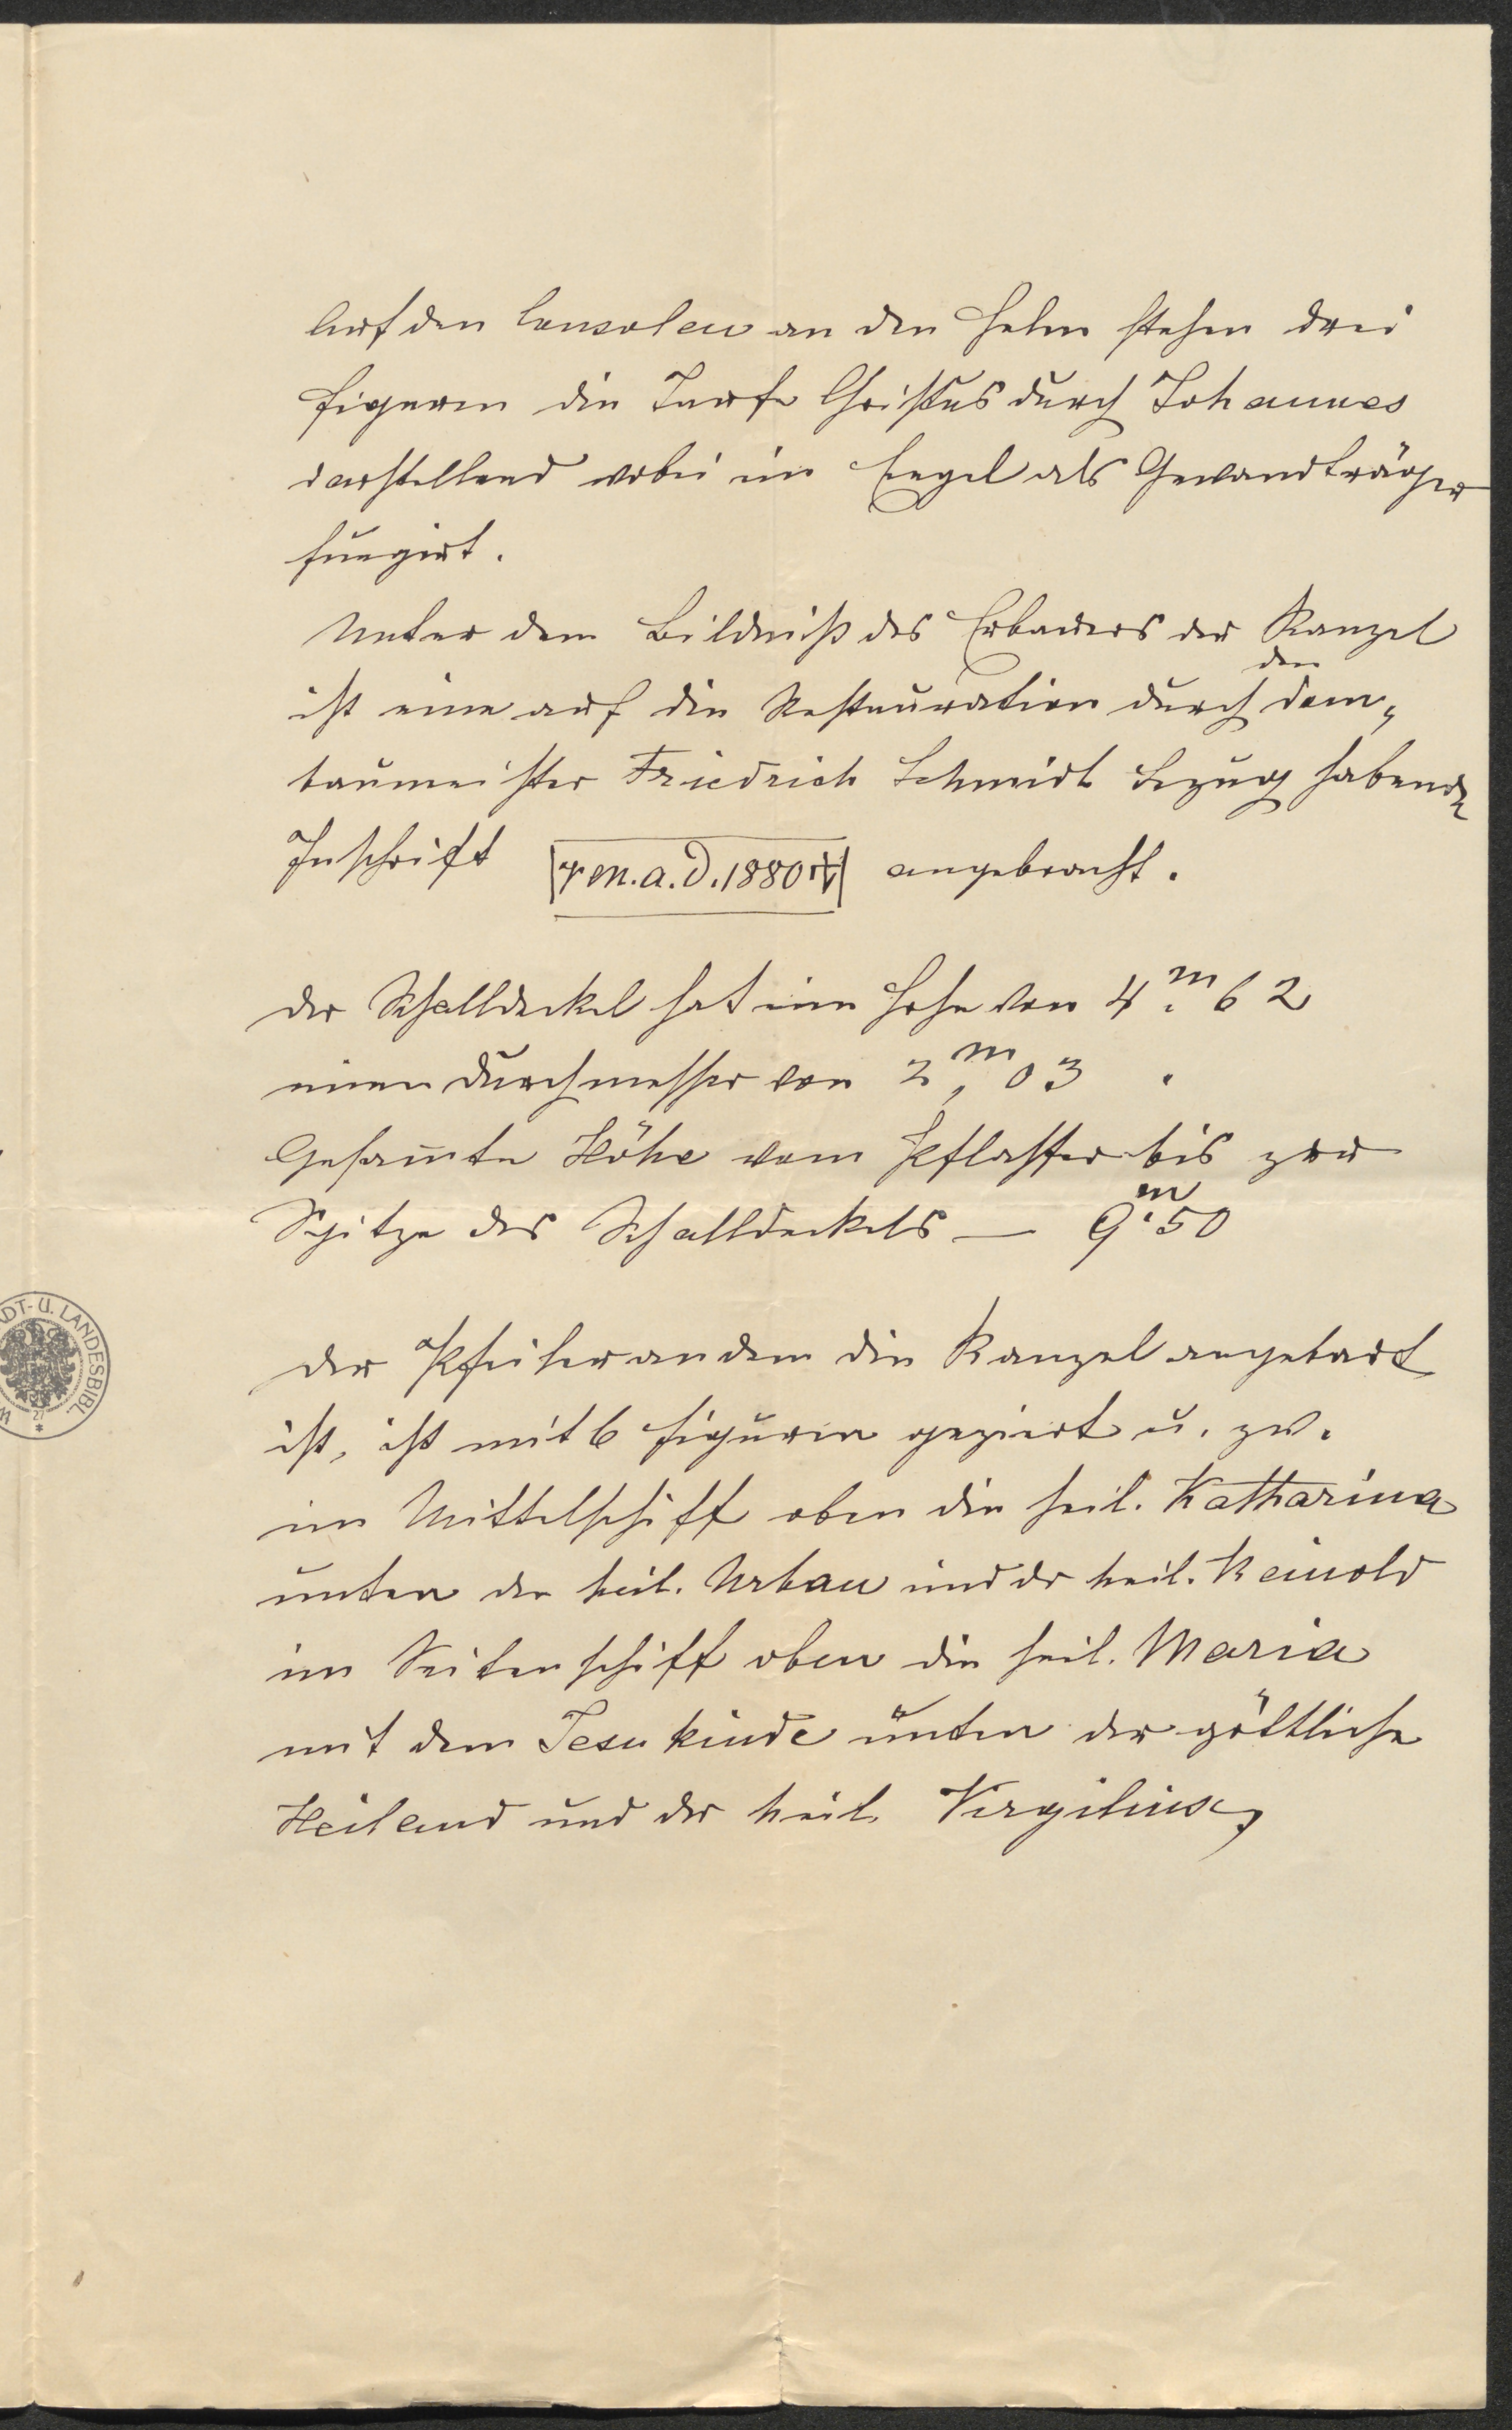 Auf den Consolen an den Helm stehen drei
Figuren die Taufe Christus durch Johannes
darstellend wobei ein Engel als Gewandträger
fungirt.
Unter dem Bildniß des Erbauers der Kanzel
ist eine auf die Restauration durch den Dom„
baumeister Friedrich Schmidt Bezug habende
Inschrift ren. a. d. 1880 angebracht.
Der Schalldeckel hat eine Höhe von 4.m 62
einen Durchmesser von 2,m 03 .
Gesam̄te Höhe vom Pflaster bis zur
Spitze des Schalldeckels — 9.m 50
Der Pfeiler an dem die Kanzel angebaut
ist, ist mit 6 Figuren geziert u. zw.
im Mittelschiff oben die heil. Katharina
unten der heil. Urban und der heil. Reinold
im Seitenschiff oben die heil. Maria
mit dem Jesukinde unten der göttliche
Heiland und der heil. Virgilius,
DT- U. LANDESBIBL.